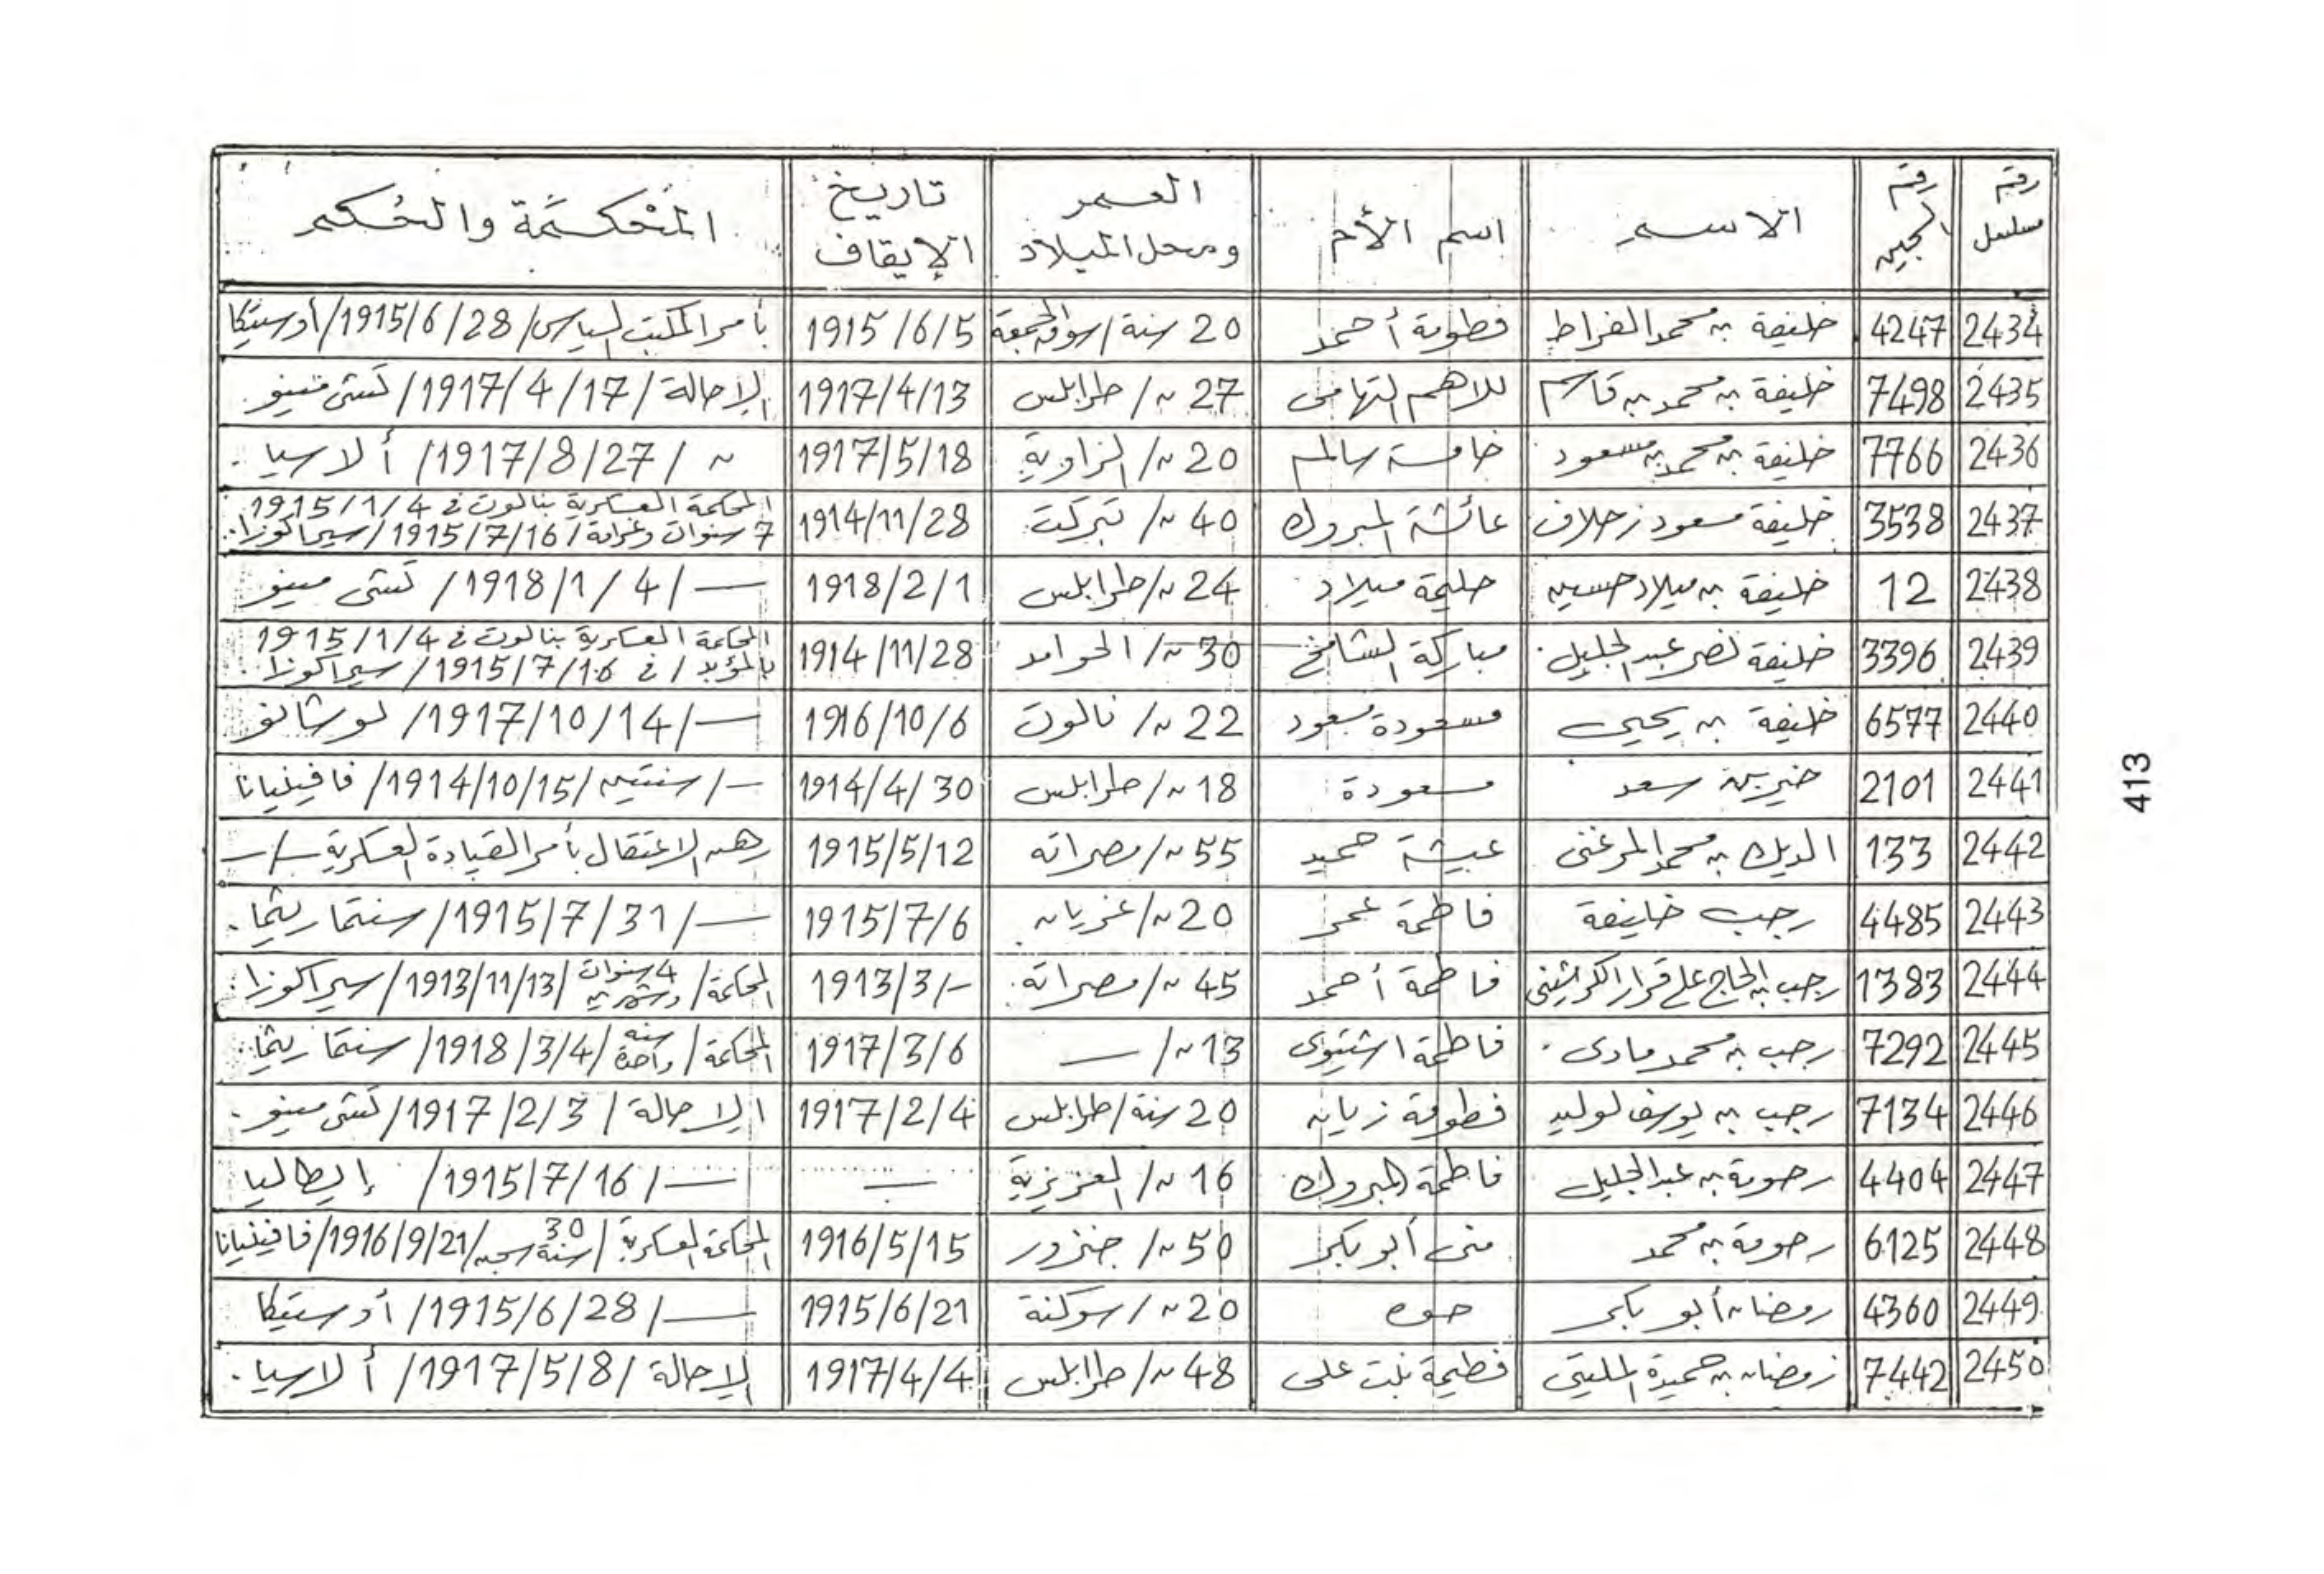 رقم مسلسل | رقم الجبين | الاسم | اسم الأم | العمر ومحل الميلاد | تاريخ الإيقاف | المحكمة والحكم
2434 | 4247 | خليفة بن محمد الفراط | فطومة أحمد | 20 سنة/سوق الجمعة | 1915/6/5 | بأمر المكتب السياسي/1915/6/28/أوستيكا
2435 | 7498 | خليفة بن محمد بن قاسم | للاهم التهامى | 27 ~/طرابلس | 1917/4/13 | الإحالة/1917/4/17/كستى منيو.
2436 | 7766 | خليفة بن محمد بن مسعود | خامسة سالم | 20 ~/الزاوية | 1917/5/18 | ~/1917/8/27/ألاسيا.
2437 | 3538 | خليفة مسعود زحلاف | عائشة المبروك | 40 ~/تبركت | 1914/11/28 | المحكمة العسكرية بنالوت في 1915/1/4
7 سنوات وغرامة/1915/7/16/سيراكوزا.
2438 | 12 | خليفة بن ميلاد حسين | حليمة ميلاد | 24 ~/طرابلس | 1918/2/1 | —/1918/1/4/كستى مينيو
2439 | 3396 | خليفة نصر عبد الجليل. | مباركة الشامخ | 30 ~/الحوامد | 1914/11/28 | المحكمة العسكرية بنالوت في 1915/1/4
بالمؤبد/في 1915/7/16/سيراكوزا.
2440 | 6577 | خليفة بن يحيى | مسعودة مسعود | 22 ~/نالوت | 1916/10/6 | —/1917/10/14/لوشانو
2441 | 2101 | خيرين سعد | مسعودة | 18 ~/طرابلس | 1914/4/30 | —/سنتين/1914/10/15/فافينيانا
2442 | 133 | الديك بن محمد المرغنى | عيشة حميد | 55 ~/مصراته | 1915/5/12 | رهن الاعتقال بأمر القيادة العسكرية —/—
2443 | 4485 | رجب خليفة | فاطمة عمر | 20 ~/غريان. | 1915/7/6 | —/1915/7/31/سنتماريثما.
2444 | 1383 | رجب بن الحاج على قرار الكراثينى | فاطمة أحمد | 45 ~/مصراته. | 1913/3/- | المحكمة/4 سنوات وشهرين/1913/11/13/سيراكوزا.
2445 | 7292 | رجب بن محمد مادى. | فاطمة اشتيوى | 13 ~/— | 1917/3/6 | المحكمة/سنة واحدة/1918/3/4/سنتماريثما.
2446 | 7134 | رجب بن يوسف لوليد | فطومة زيان | 20 سنة/طرابلس | 1917/2/4 | الإحالة/1917/2/3/كستى مينو.
2447 | 4404 | رحومة بن عبد الجليل | فاطمة المبروك | 16 ~/العزيزية | — | —/1915/7/16/إيطاليا
2448 | 6125 | رحومة بن محمد | منى أبو بكر | 50 ~/جنزور | 1916/5/15 | المحكمة العسكرية/30 سنة سجن/1916/9/21/فافينيانا
2449 | 4360 | رمضان أبو بكر | حوه | 20 ~/سوكنة | 1915/6/21 | —/1915/6/28/أوستيكا
2450 | 7442 | رمضان بن حميدة المليتى | فطيمة بنت على | 48 ~/طرابلس | 1917/4/4 | الإحالة/1917/5/8/ألاسيا.
413